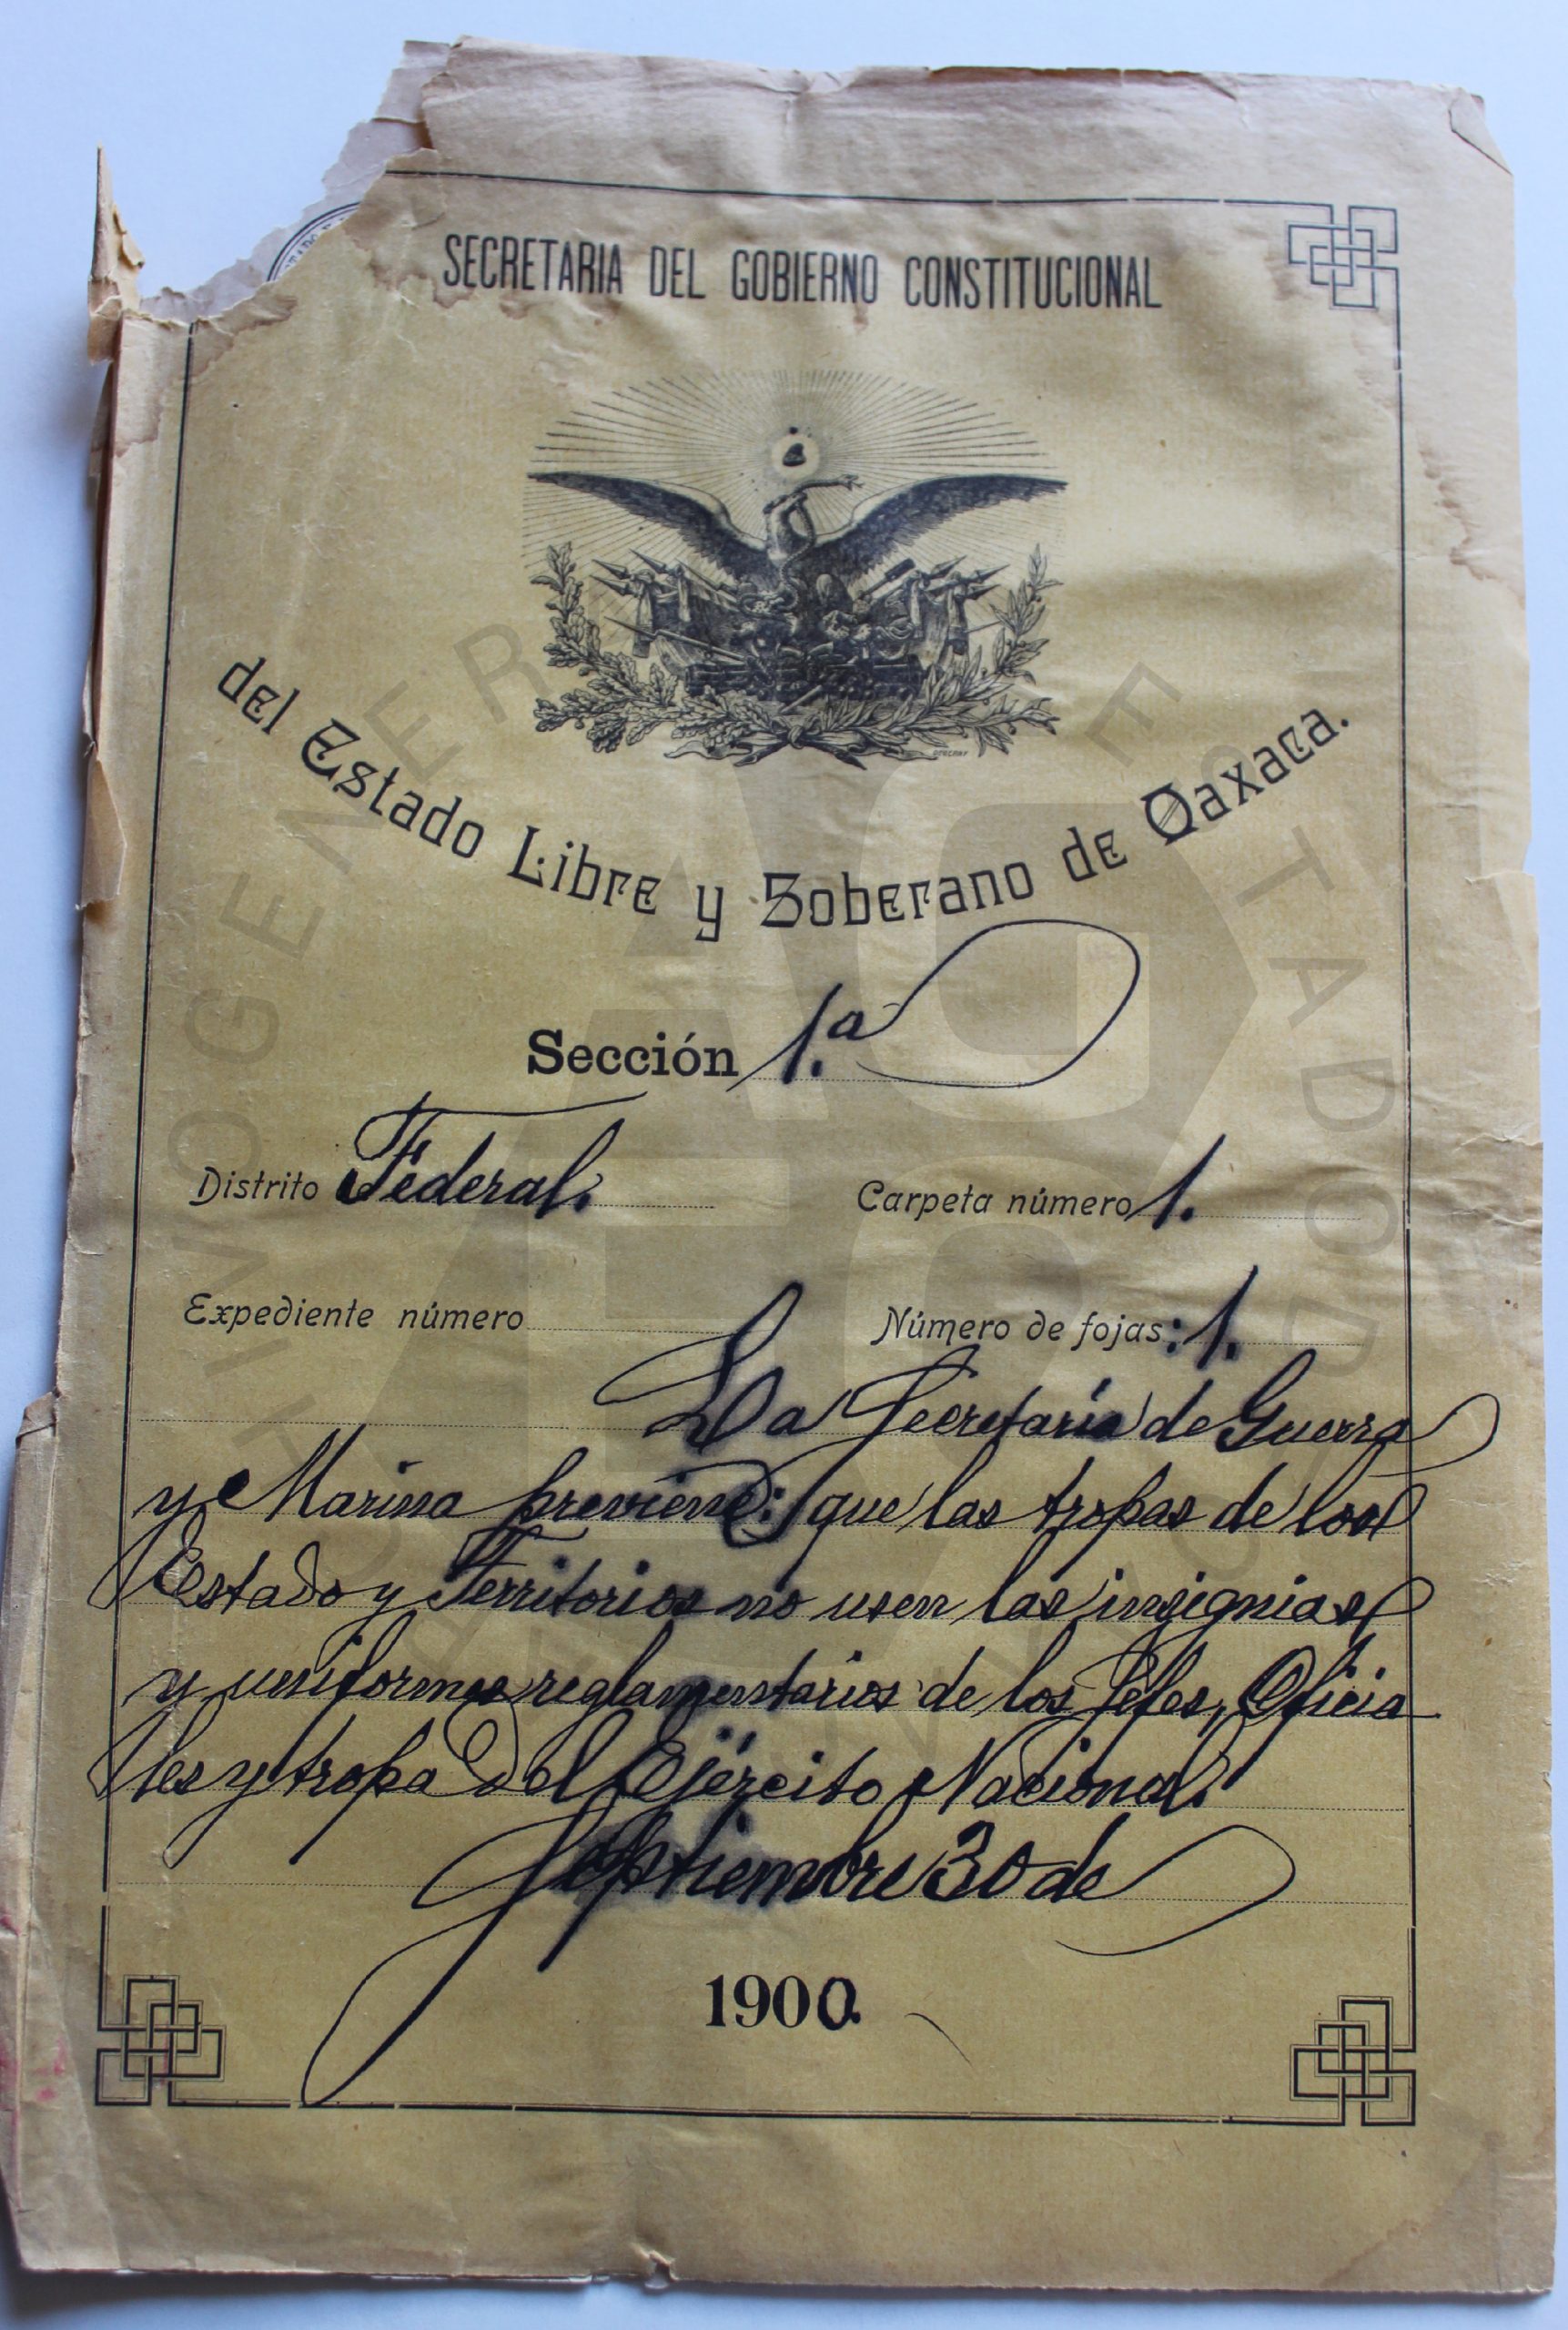 SECRETARIA DEL GOBIERNO CONSTITUCIONAL
del Estado Libre y Soberano de Oaxaca.
Sección 1.a
Distrito Federal.
Carpeta número 1.
Expediente número
Número de fojas: 1.
La Secretaría de Guerra
y Marina previene: que las tropas de los
Estado y Territorios no usen las insignias
y uniformes reglamentarios de los Jefes, Oficia
les y tropa del Ejército Nacional.
Septiembre 30 de
1900.